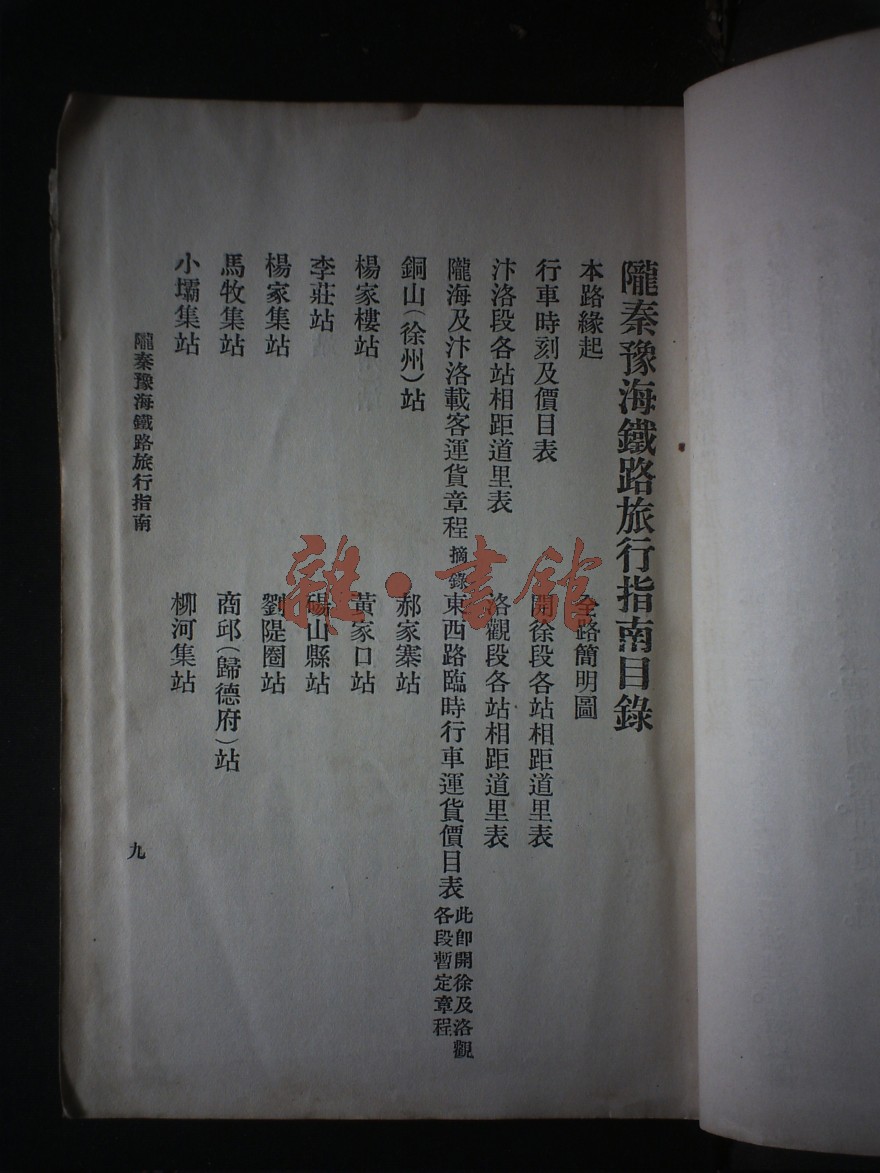 隴秦豫海鐵路旅行指南目錄
本路緣起 全路簡明圖
行車時刻及價目表 開徐段各站相距道里表
汴洛段各站相距道里表 洛觀段各站相距道里表
隴海及汴洛載客運貨章程摘錄 東西路臨時行車運貨價目表 此卽開徐及洛觀各段暫定章程
銅山(徐州)站 郝家寨站
楊家樓站 黃家口站
李莊站 碭山縣站
楊家集站 劉隄圈站
馬牧集站 商邱(歸德府)站
小壩集站 柳河集站
隴秦豫海鐵路旅行指南
九
雜·書館